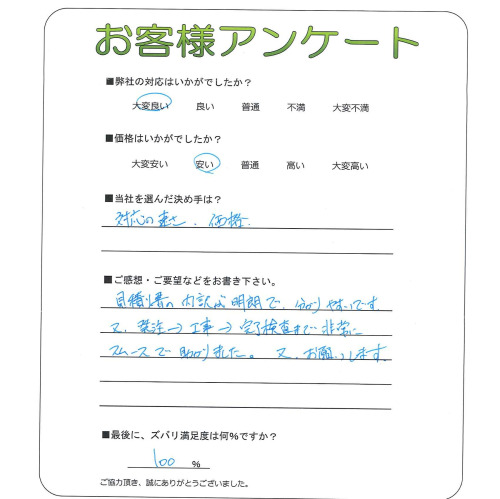 お客様アンケート
■弊社の対応はいかがでしたか？
大変良い 良い 普通 不満 大変不満
■価格はいかがでしたか？
大変安い 安い 普通 高い 大変高い
■当社を選んだ決め手は？
対応の速さ、価格、
■ご感想・ご要望などをお書き下さい。
見積書の内訳が明朗で、分かりやすいです
又、発注→工事→完了検査まで非常に
スムーズで助かりました。又、お願いします。
■最後に、ズバリ満足度は何%ですか？
100 %
ご協力頂き、誠にありがとうございました。